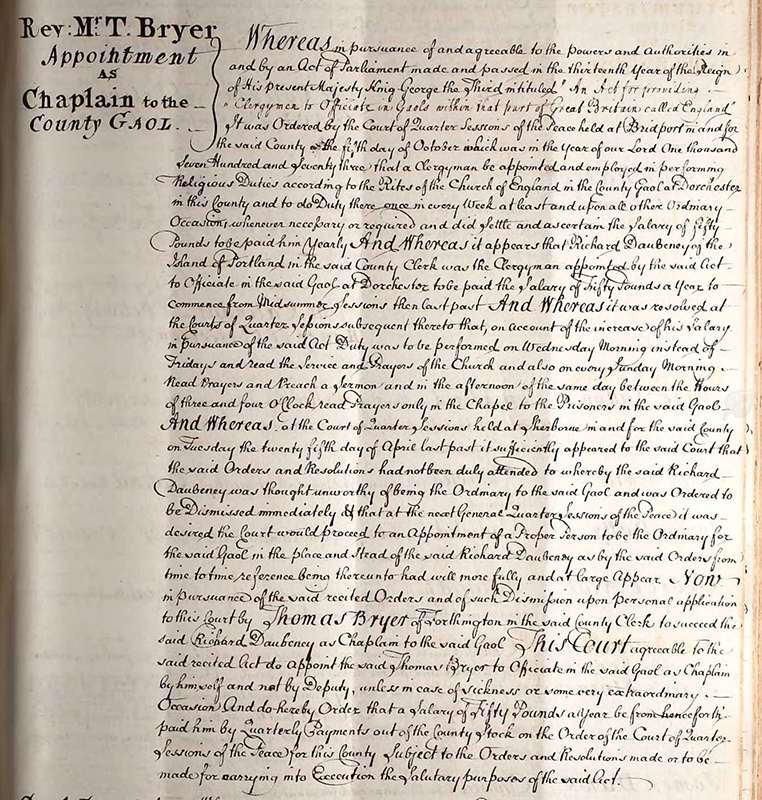 Rev: Mr. T. Bryer
Appointment
AS
Chaplain to the
County GAOL.
Whereas in pursuance of and agreeable to the Powers and Authorities in
and by an Act of Parliament made and passed in the thirteenth Year of the Reign
of His present Majesty King George the Third intituled "An Act for providing
"Clergymen to Officiate in Gaols within that part of Great Britain called England"
It was Ordered by the Court of Quarter Sessions of the Peace held at Bridport in and for
the said County on the fifth day of October which was in the Year of our Lord One thousand
Seven Hundred and Seventy three that a Clergyman be appointed and employed in performing
Religious Duties according to the Rites of the Church of England in the County Gaol at Dorchester
in this County and to do Duty there once in every Week at least and upon all other Ordinary
Occasions whenever necessary or required and did settle and ascertain the Salary of Fifty
Pounds to be paid him Yearly And Whereas it appears that Richard Daubeney of the
Island of Portland in the said County Clerk was the Clergyman appointed by the said Act
to Officiate in the said Gaol at Dorchester to be paid the Salary of Fifty Pounds a Year to
commence from Midsummer Sessions then last past And Whereas it was resolved at
the Courts of Quarter Sessions subsequent thereto that, on account of the increase of his Salary
in pursuance of the said Act Duty was to be performed on Wednesday Morning instead of
Fridays and read the Service and Prayers of the Church and also on every Sunday Morning
Read Prayers and Preach a Sermon and in the afternoon of the same day between the Hours
of three and four O'Clock read Prayers only in the Chapel to the Prisoners in the said Gaol
And Whereas at the Court of Quarter Sessions held at Sherborne in and for the said County
on Tuesday the twenty fifth day of April last past it sufficiently appeared to the said Court that
the said Orders and Resolutions had not been duly attended to whereby the said Richard
Daubeney was thought unworthy of being the Ordinary to the said Gaol and was Ordered to
be Dismissed immediately & that at the next General Quarter Sessions of the Peace it was
desired the Court would proceed to an Appointment of a Proper Person to be the Ordinary for
the said Gaol in the place and Stead of the said Richard Daubeney as by the said Orders from
time to time, reference being thereunto had will more fully and at large Appear Now
in pursuance of the said recited Orders and of such Dismission upon personal application
to this Court by Thomas Bryer of Forthington in the said County Clerk to succeed the
said Richard Daubeney as Chaplain to the said Gaol This Court agreeable to the
said recited Act do appoint the said Thomas Bryer to Officiate in the said Gaol as Chaplain
by himself and not by Deputy, unless in case of sickness or some very extraordinary
Occasion And do hereby Order that a Salary of Fifty Pounds a Year be from henceforth
paid him by Quarterly Payments out of the County Stock on the Order of the Court of Quarter
Sessions of the Peace for this County Subject to the Orders and Resolutions made or to be
made for carrying into Execution the Salutary purposes of the said Act.